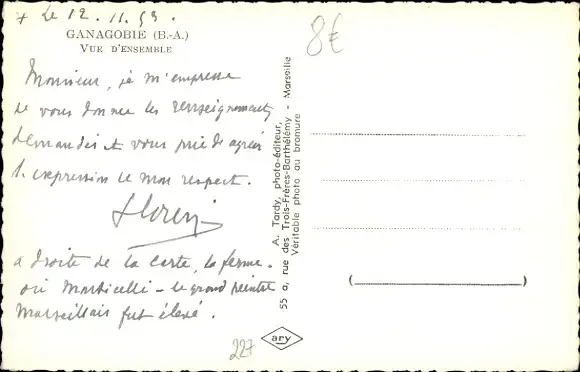 + Le 12.11.53.
GANAGOBIE (B.-A.)
VUE D'ENSEMBLE
8€
Monsieur, je m'empresse
de vous donner les renseignements
demandés et vous prie d'agréer
l'expression de mon respect.
a droite de la carte, la ferme.
où Monticelli - le grand peintre
Marseillais fut élevé.
A. Tardy, photo-éditeur,
55 a, rue des Trois-Frères-Barthélémy - Marseille
Véritable photo au bromure
227
ary